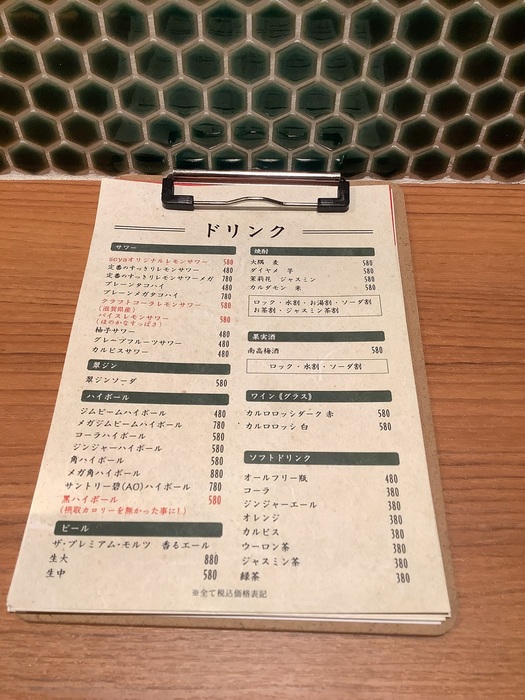 ドリンク
サワー
soyaオリジナルレモンサワー 580
定番のすっきりレモンサワー 480
定番のすっきりレモンサワーメガ 780
プレーンタコハイ 480
プレーンメガタコハイ 780
クラフトコーラレモンサワー 580
(滋賀県産)
バイスレモンサワー 580
(ほのかなすっぱさ)
柚子サワー 480
グレープフルーツサワー 480
カルピスサワー 480
翠ジン
翠ジンソーダ 580
ハイボール
ジムビームハイボール 480
メガジムビームハイボール 780
コーラハイボール 580
ジンジャーハイボール 580
角ハイボール 580
メガ角ハイボール 880
サントリー碧(AO)ハイボール 780
黒ハイボール 580
(摂取カロリーを無かった事に!)
ビール
ザ・プレミアム・モルツ 香るエール
生大 880
生中 580
焼酎
大隅 麦 580
ダイヤメ 芋 580
茉莉花 ジャスミン 580
カルダモン 米 580
ロック・水割・お湯割・ソーダ割
お茶割・ジャスミン茶割
果実酒
南高梅酒 580
ロック・水割・ソーダ割
ワイン《グラス》
カルロロッシダーク 赤 580
カルロロッシ 白 580
ソフトドリンク
オールフリー瓶 480
コーラ 380
ジンジャーエール 380
オレンジ 380
カルピス 380
ウーロン茶 380
ジャスミン茶 380
緑茶 380
※全て税込価格表記